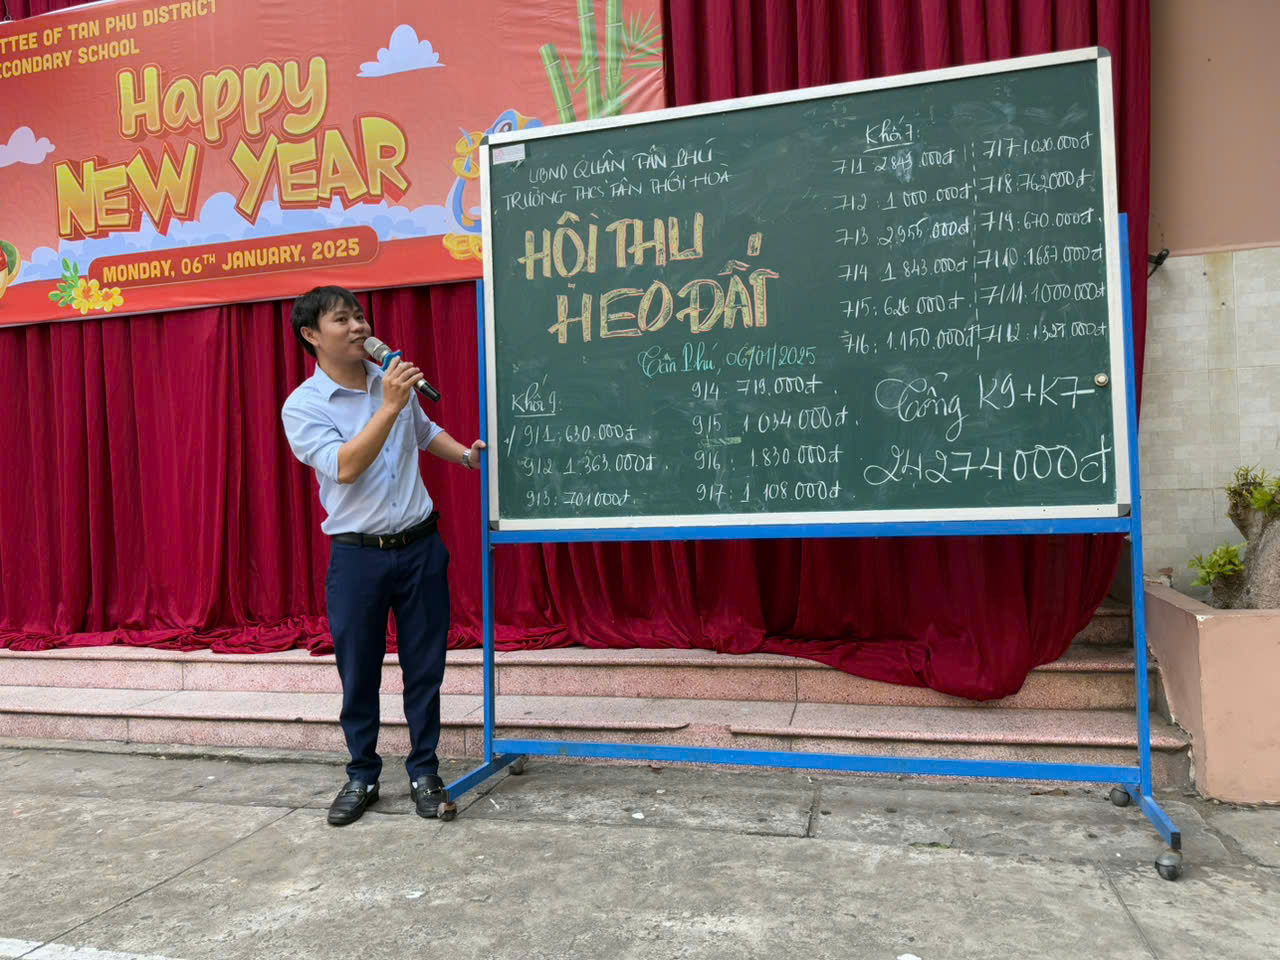 TTEE OF TAN PHU DISTRICT
ECONDARY SCHOOL
Happy
NEW YEAR
MONDAY, 06TH JANUARY, 2025
UBND QUẬN TÂN PHÚ
TRƯỜNG THCS TÂN THỚI HOÀ
HỘI THU
HEO ĐẤT
Tân Phú, 06/01/2025
Khối 9:
9/1: 630.000đ
9/2 1.363.000đ
9/3: 701000đ
9/4 719.000đ
9/5 1 034.000đ
9/6 1.830.000đ
9/7: 1 108.000đ
Khối 7:
7/1 2.843.000đ
7/2: 1 000.000đ
7/3: 2.955.000đ
7/4 1 843.000đ
7/5: 626.000đ
7/6: 1.150.000đ
7/7 1.020.000đ
7/8: 762000đ
7/9: 670.000đ
7/10: 1.687.000đ
7/11: 1000.000đ
7/12: 1.327.000đ
Tổng K9+K7
24274000đ